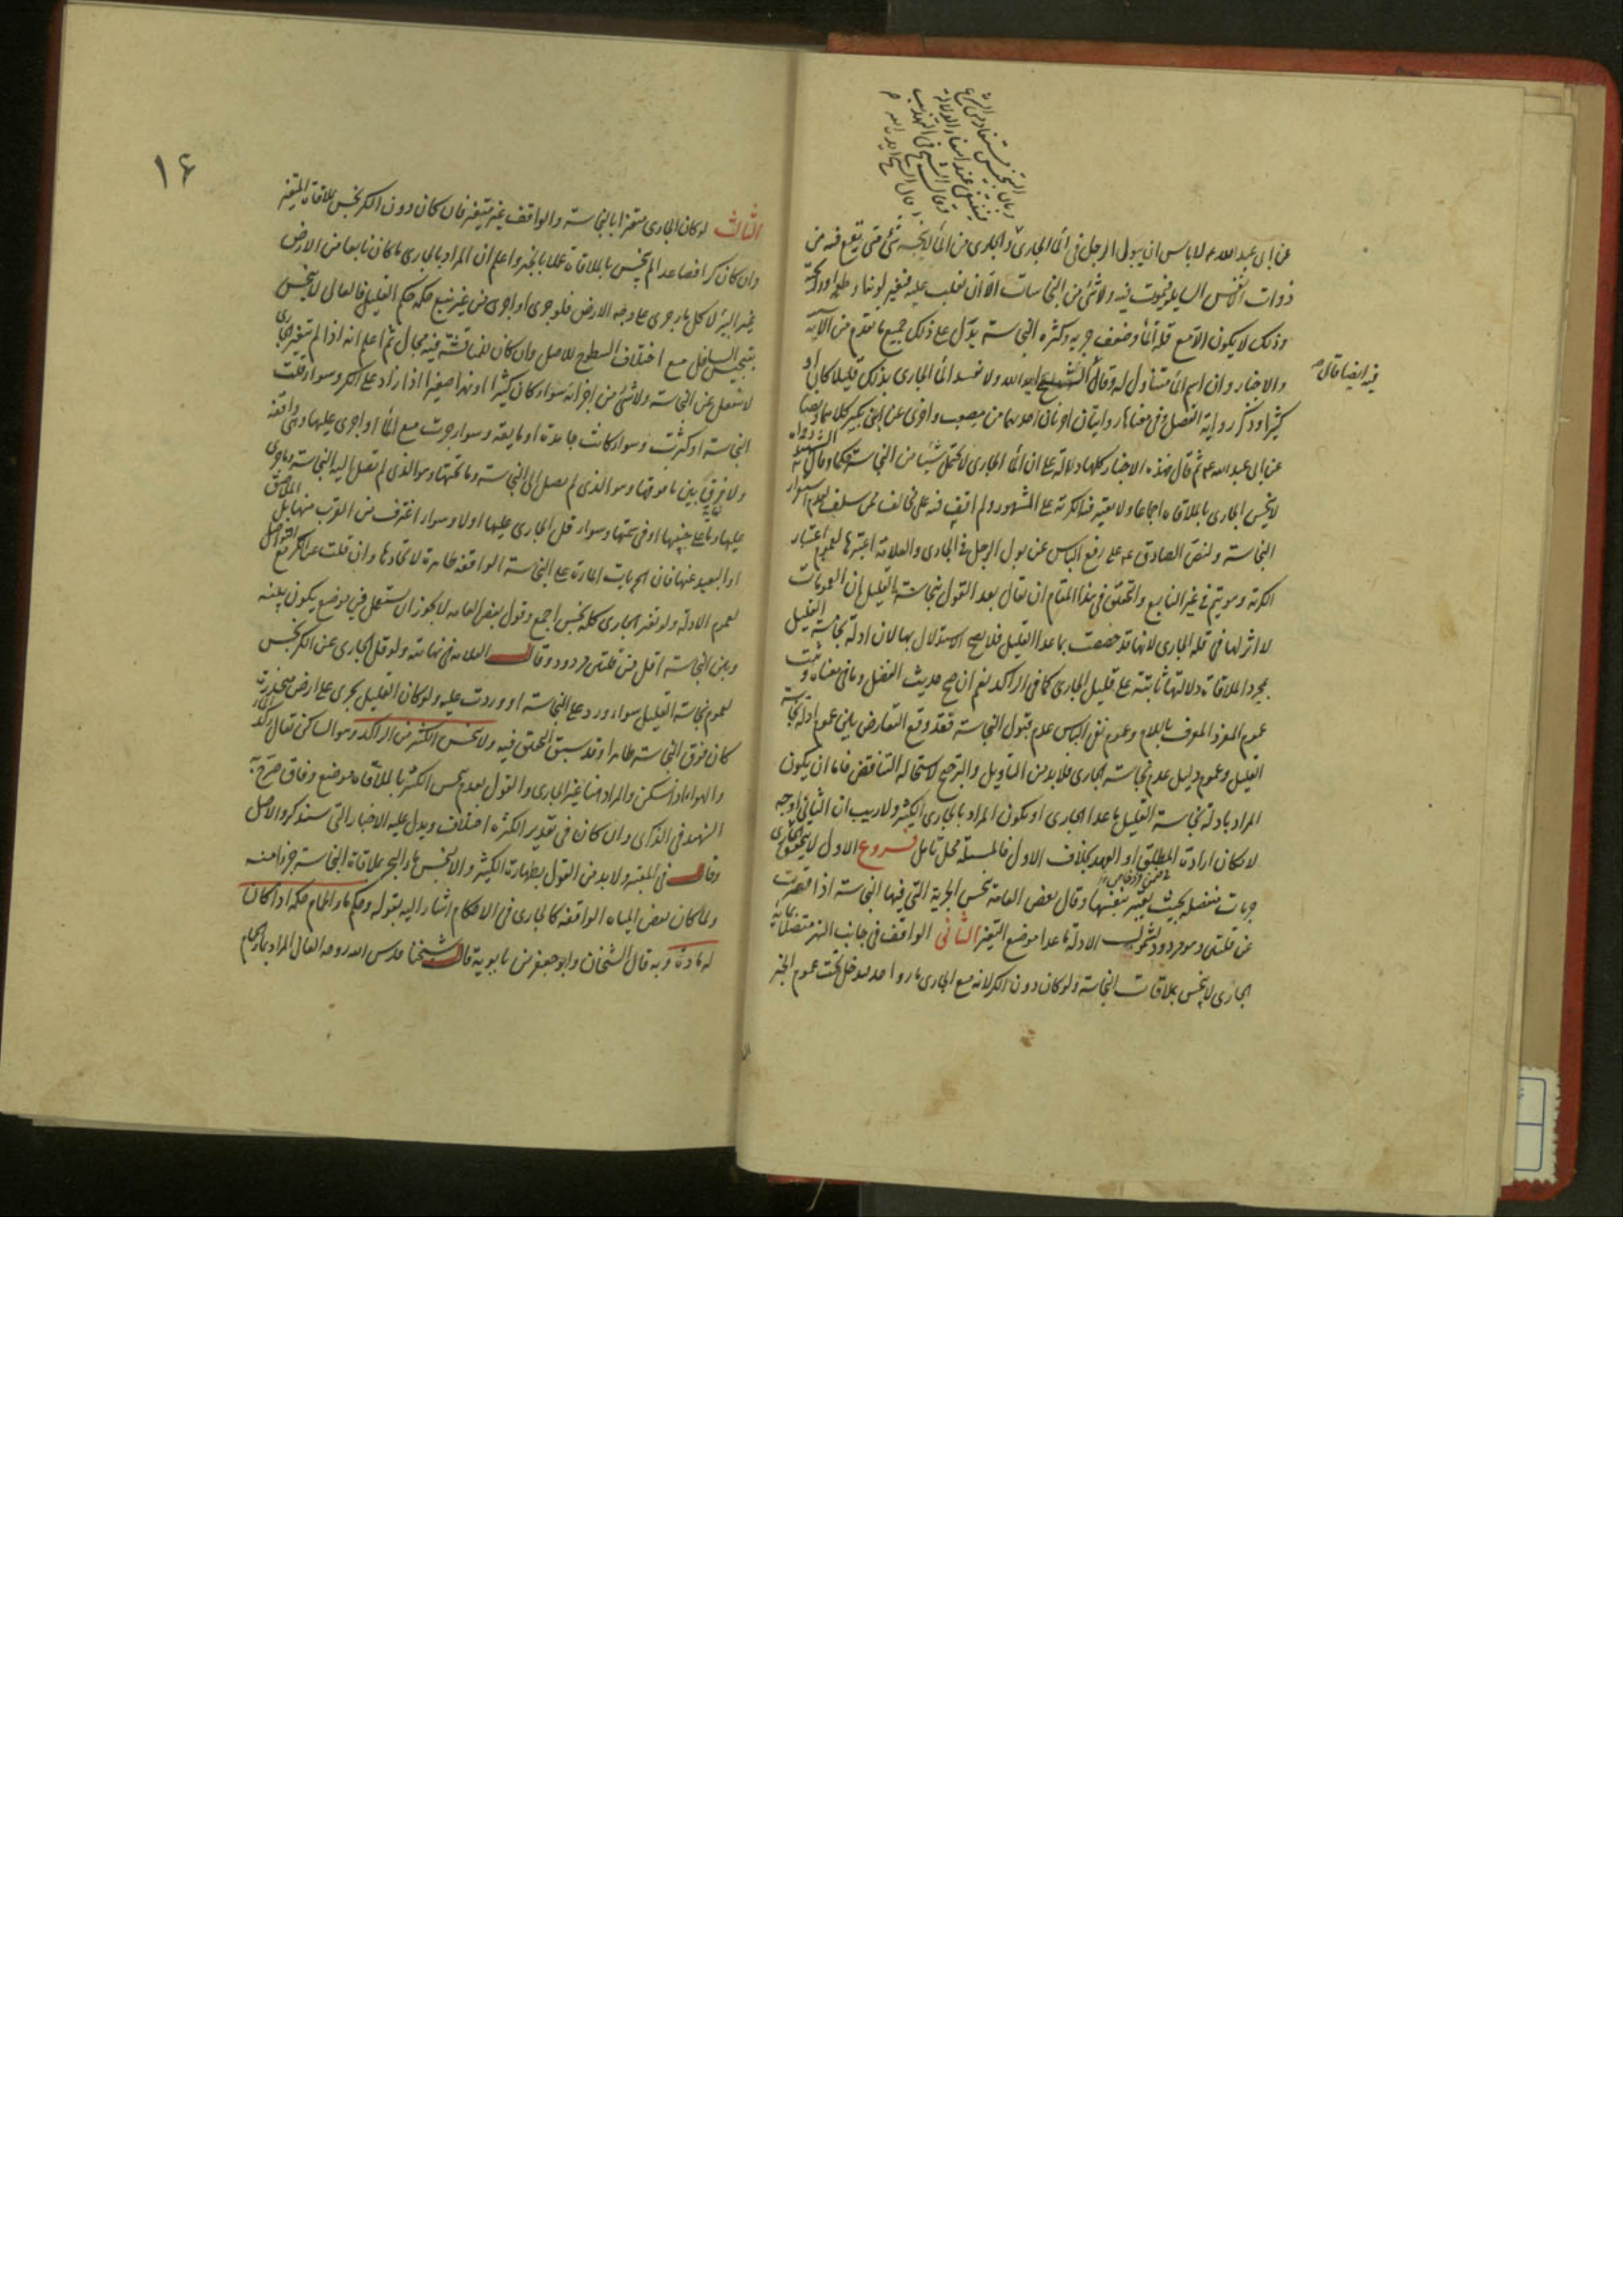 عن ابى عبد الله ع لا باس ان يبول الرجل فى الماء الجارى والجارى من الماء لا ينجسه شئ متى يقع فيه من
ذوات الانفس السايلة فيموت فيه ولا شئ من النجاسات الا ان تغلب عليه فتغير لونها و طعمه او رائحته
وذلك لا يكون الا مع قلة الماء وضعف جريه وكثرة النجاسة يدل على ذلك جميع ما تقدم من الآية
والاخبار وان اسم الماء متناول له وقال الشيخ ايده الله ولا يفسد الماء الجارى بذلك قليلا كان او
كثيرا وذكر رواية الفضل وفى معناها روايتان اخريان احديهما من مصعب واخرى عن ابن بكير كلاهما
عن ابى عبد الله ع ثم قال فهذه الاخبار كلها دلالة على ان الماء الجارى لا يحتمل شيئا من النجاسة حكما وقال
لا ينجس الجارى بالملاقاة اجماعا ولا يعتبر فيه الكرية على المشهور ولم اقف فيه على مخالف ممن سلف لعدم استقرار
النجاسة ولنص الصادق ع على رفع الباس عن بول الرجل فى الجارى والعلامة اعتبرها لعموم اعتبار
الكرية وهو يتم فى غير النابع والتحقيق فى هذا المقام ان يقال بعد القول بنجاسة القليل ان العمومات
لا اثر لها فى قلة الجارى لانها قد خصصت بما عدا القليل فلا يصح الاستدلال بها لان ادلة نجاسة القليل
بمجرد الملاقاة دلالتها ثابتة على قليل الجارى كما فى الراكد نعم ان صح حديث الفضل وما فى معناه وثبت
عموم المفرد المعرف باللام وعموم نفى الباس عدم قبول النجاسة فقد وقع التعارض بين عموم ادلة نجاسة
القليل وعموم دليل عدم نجاسة الجارى فلا بد من التاويل والترجيح لاستحالة التناقض فاما ان يكون
المراد بادلة نجاسة القليل ما عدا الجارى او يكون المراد بالجارى الكثير ولا ريب ان الثانى اوجه
لامكان ارادة المطلق او العهد بخلاف الاول فالمسئلة محل تامل فروع الاول لا يتحقق للجارى
جريات منفصلة بحيث يعتبر بنفسها وقال بعض العامة ينجس الجرية التى فيها النجاسة اذا قصرت
عن قلتين وهو مردود لشمول الادلة ما عدا موضع التغير الثانى الواقف فى جانب النهر متصلا بماء
الجارى لا ينجس بملاقات النجاسة ولو كان دون الكر لانه مع الجارى ماء واحد فدخل تحت عموم الخبر
فيه ايضا قال
١٤
الثالث لو كان الجارى متغيرا بالنجاسة والواقف غير متغير فان كان دون الكر نجس بملاقاة المتغير
وان كان كرا فصاعدا لم ينجس بالملاقاة عملا بالخبر واعلم ان المراد بالجارى ما كان نابعا من الارض
غير البئر لا كل ما جرى على وجه الارض فلو جرى او اجرى من غير نبع حكمه حكم القليل فالعالى لا ينجس
بتنجيس السافل مع اختلاف السطوح للاصل وان كان للمناقشة فيه مجال ثم اعلم انه اذا لم يتغير الجارى
لا ينفعل عن النجاسة ولا شئ من اجزائه سواء كان كثيرا او نهرا صغيرا اذا زاد على الكر وسواء قلت
النجاسة او كثرت وسواء كانت جامدة او مايعة وسواء جرت مع الماء او اجرى عليها وهى واقفة
ولا فرق بين ما فوقها وهو الذى لم يصل الى النجاسة وما تحتها وهو الذى لم تصل اليه النجاسة وما جرى
عليها وما على جنبها او فى سمتها وسواء قل الجارى عليها اولا وسواء اغترف من القرب منها بل الملاصق
او البعيد عنها فان الجريات المارة على النجاسة الواقفة طاهرة لاتحادها وان قلت عن الكر مع التواصل
لعموم الادلة ولو تغير الجارى كله نجس اجمع وقول بعض العامة لا يجوز ان يستعمل من موضع يكون بينه
وبين النجاسة اقل من قلتين مردود وقال العلامة فى نهايته ولو قل الجارى عن الكر نجس
لعموم نجاسة القليل سواء ورد على النجاسة او وردت عليه ولو كان القليل يجرى على ارض منحدرة
كان فوق النجاسة طاهرا وقد سبق التحقيق فيه ولا ينجس الكثير من الراكد وهو الساكن يقال ركد الماء
والهواء اذا سكن والمراد هنا غير الجارى والقول بعدم نجس الكثير بالملاقاة موضع وفاق صرح به
الشهيد فى الذكرى وان كان فى تقدير الكثرة اختلاف ويدل عليه الاخبار التى سنذكر والاصل
وقال فى المعتبر ولا بد من القول بطهارة الكثير والا لنجس ماء البحر بملاقاة النجاسة جزءا منه
ولما كان بعض المياه الواقفة كالجارى فى الاحكام اشار اليه بقوله وحكم ماء الحمام حكمه اذا كان
له مادة وبه قال الشيخان وابو جعفر بن بابويه قال شيخنا قدس الله روحه العالى المراد بماء الحمام